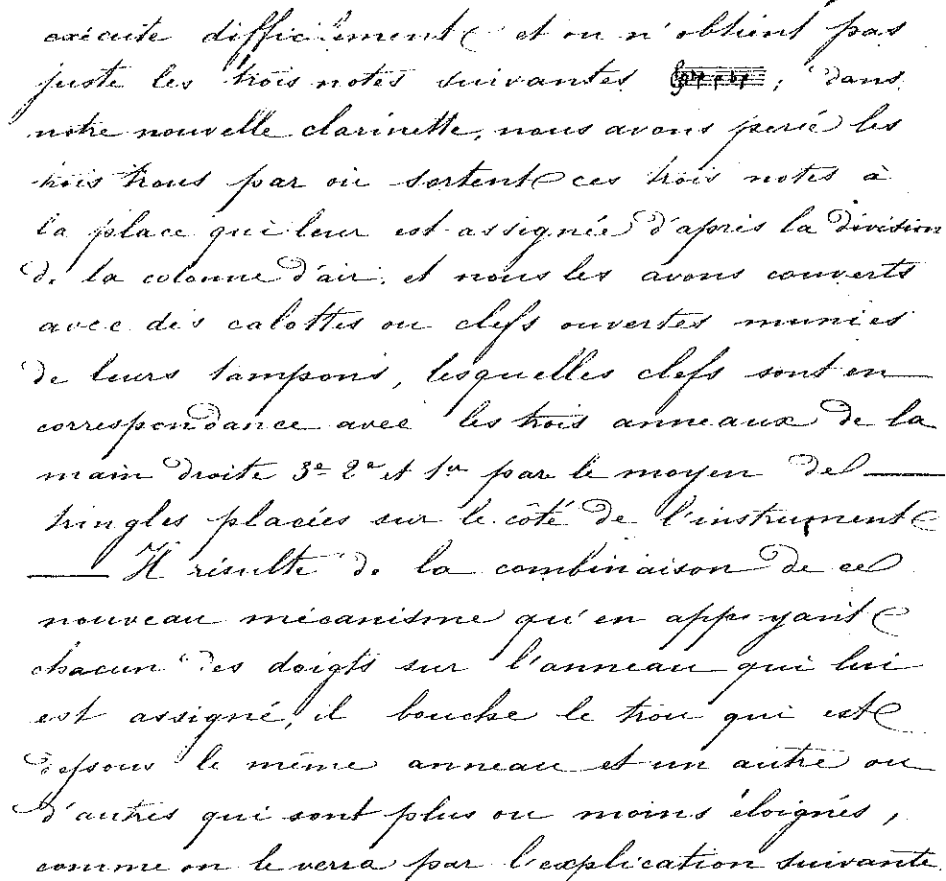 exécute difficilement et on n'obtient pas
juste les trois notes suivantes ; dans
notre nouvelle clarinette, nous avons percé les
trois trous par où sortent ces trois notes à
la place qui leur est assignée d'après la division
de la colonne d'air, et nous les avons couverts
avec des calottes ou clefs ouvertes munies
de leurs tampons, lesquelles clefs sont en
correspondance avec les trois anneaux de la
main droite 3e 2e et 1er par le moyen de
tringles placées sur le côté de l'instrument
Il résulte de la combinaison de ce
nouveau mécanisme qu'en appuyant
chacun des doigts sur l'anneau qui lui
est assigné, il bouche le trou qui est
dessous le même anneau et un autre ou
d'autres qui sont plus ou moins éloignés,
comme on le verra par l'explication suivante.